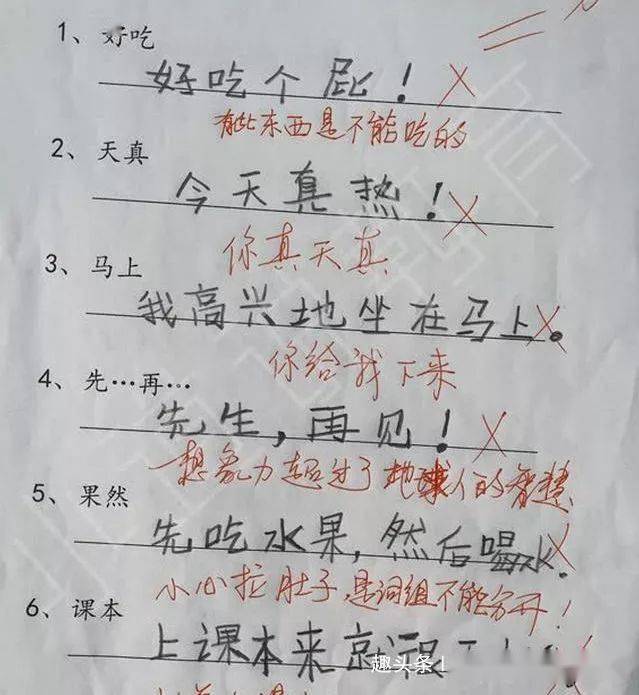 1、好吃
好吃个屁！
有些东西是不能吃的
2、天真
今天真热！
你真天真
3、马上
我高兴地坐在马上。
你给我下来
4、先…再…
先生，再见！
想象力超过了地球人的智慧
5、果然
先吃水果，然后喝水。
小心拉肚子，是词组不能分开！
6、课本
上课本来就
趣头条